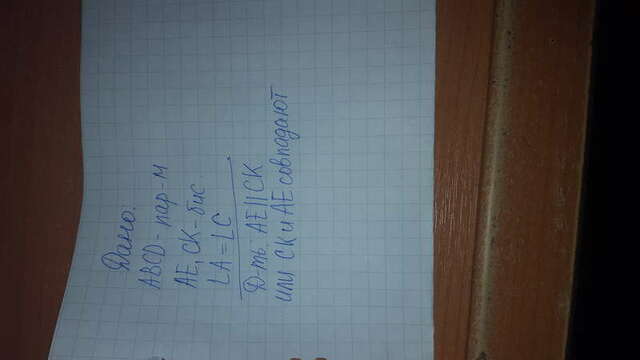 Дано:
ABCD - пар-м
AE, CK - бис.
∠A = ∠C
Д-ть: AE || CK
или CK и AE совпадают